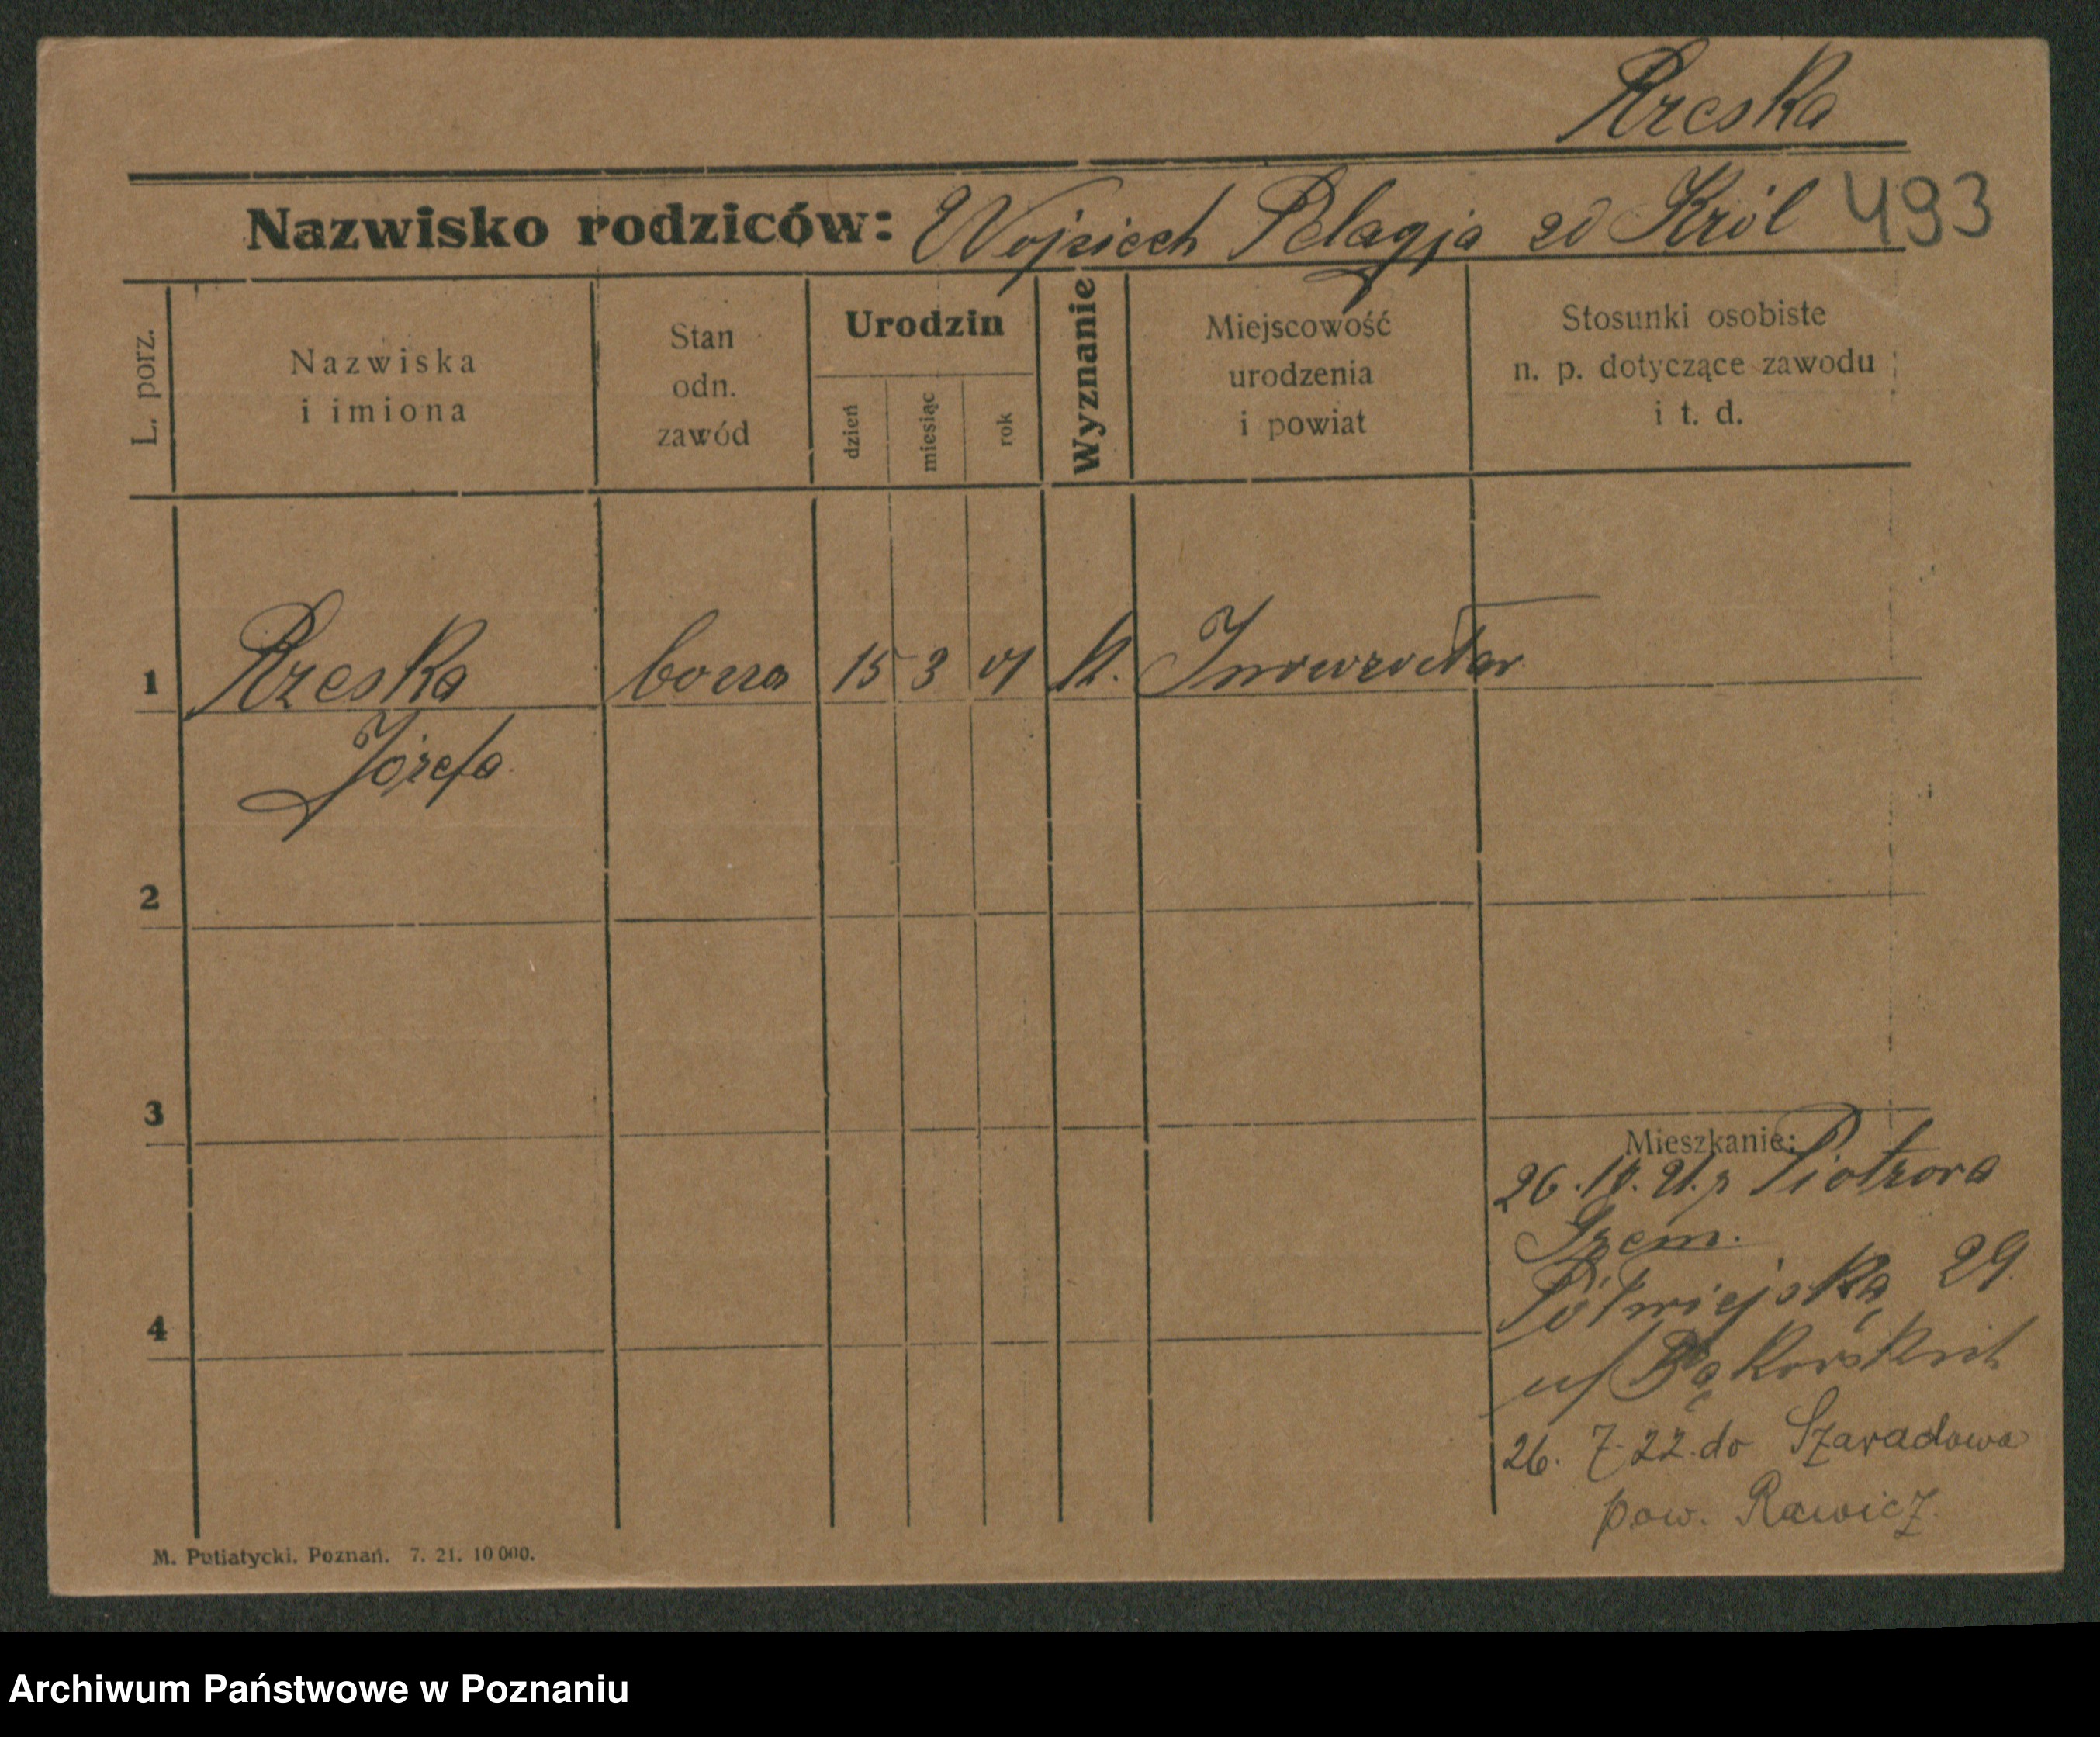 Rzeska
Nazwisko rodziców: Wojciech Pelagja zd Król 493
L. porz.
Nazwiska
i imiona
Stan
odn.
zawód
Urodzin
dzień
miesiąc
rok
Wyznanie
Miejscowość
urodzenia
i powiat
Stosunki osobiste
n. p. dotyczące zawodu
i t. d.
1 Rzeska córka 15 3 01 k. Inowrocław
Józefa
2
3
4
Mieszkanie:
26. 10. 21. z Piotrowa
Szem.
Półwiejska 29.
u/ Bąkowskich
26. 7. 22. do Szaradowa
pow. Rawicz.
M. Putiatycki. Poznań. 7. 21. 10 000.
Archiwum Państwowe w Poznaniu